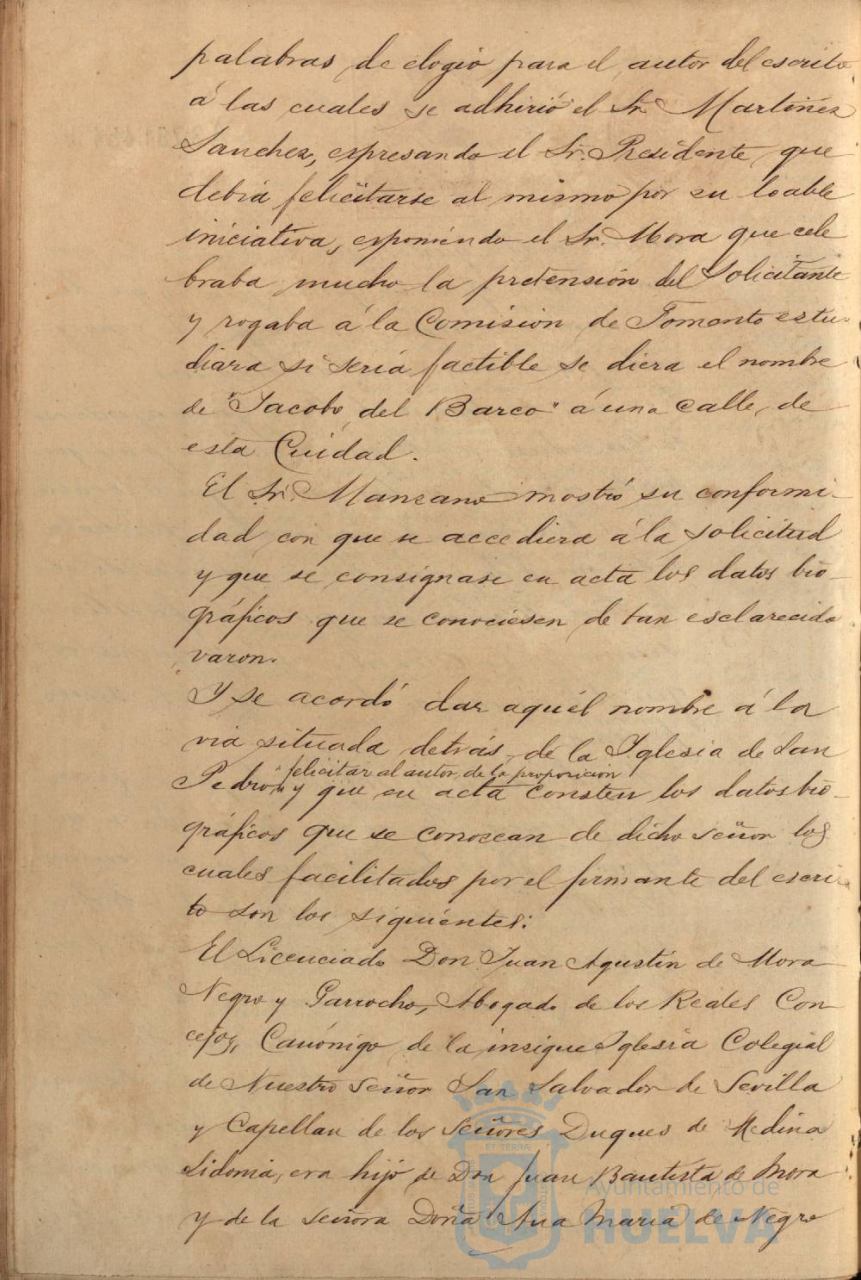 palabras de elogio para el autor del escrito
á las cuales se adhirió el Sr. Martinez
Sanchez, expresando el Sr. Presidente que
debia felicitarse al mismo por su loable
iniciativa, exponiendo el Sr. Mora que cele
braba mucho la pretensión del Solicitante
y rogaba á la Comisión de Fomento estu-
diara si seria factible se diera el nombre
de "Jacobo del Barco" á una calle de
esta Cuidad.
El Sr. Manzano mostró su conformi-
dad con que se accediera á la solicitud
y que se consignase en acta los datos bio-
gráficos que se conociesen de tan esclarecido
varon.
Y se acordó dar aquél nombre á la
via situada detrás de la Iglesia de San
felicitar al autor de la proposición
Pedro, y que en acta consten los datos bio-
gráficos que se conozcan de dicho señor los
cuales facilitados por el firmante del escri-
to son los siguientes:
El Licenciado Don Juan Agustin de Mora
Negro y Garrocho, Abogado de los Reales Con
cejos, Canónigo de la insigne Iglesia Colegial
de Nuestro Señor San Salvador de Sevilla
y Capellan de los Señores Duques de Medina
Sidonia, era hijo de Don Juan Bautista de Mora
y de la señora Doña Ana Maria de Negro
Ayuntamiento de
HUELVA